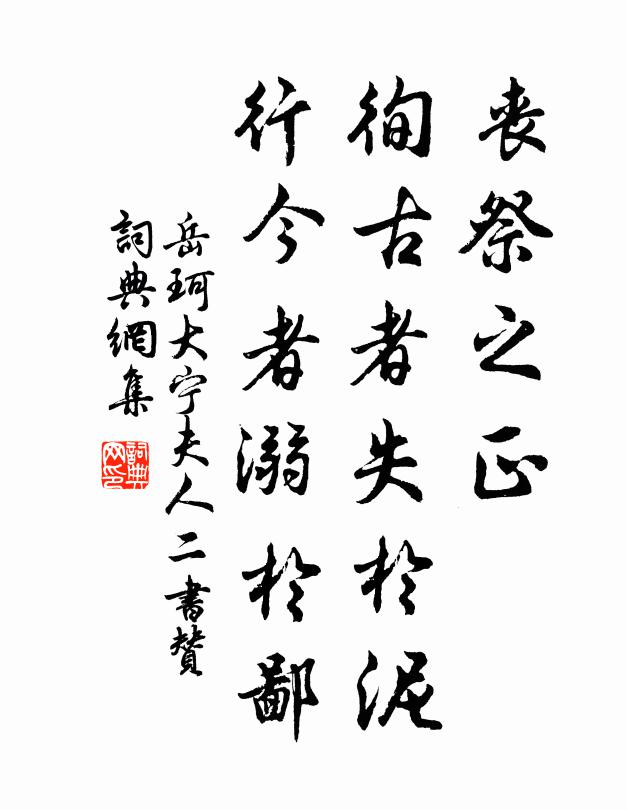 喪祭之正
徇古者失於泥
行今者溺於鄙
岳珂大宁夫人二書贊
詞典網集
詞典网印